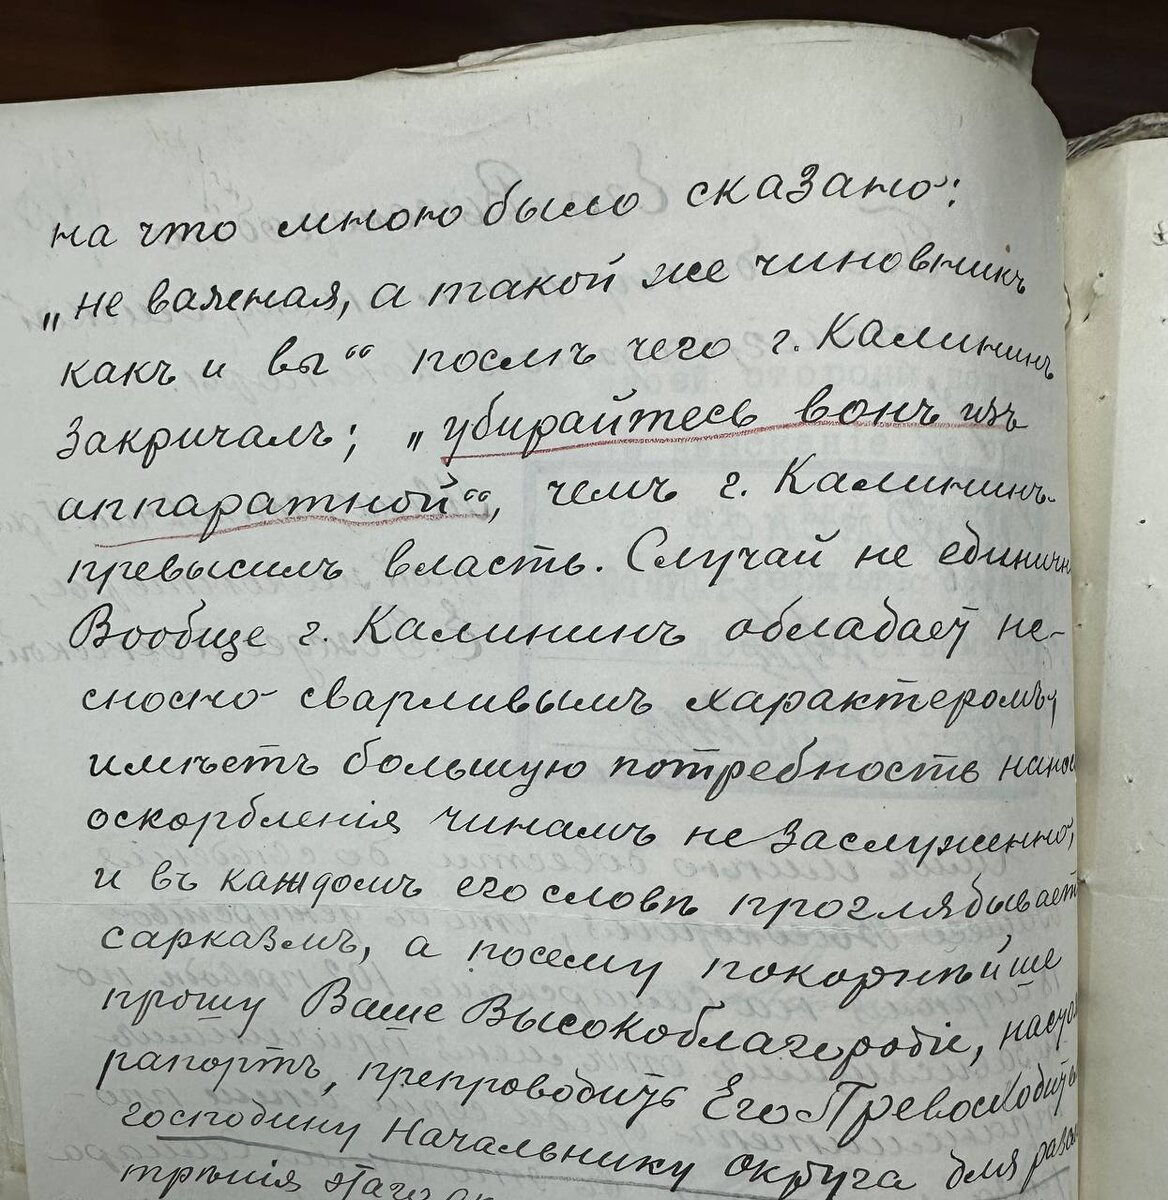 на что мною было сказано:
„не важная, а такой же чиновникъ
какъ и вы“ послѣ чего г. Калининъ
закричалъ; „убирайтесь вонъ изъ
аппаратной“, чемъ г. Калининъ
превысилъ власть. Случай не единичн
Вообще г. Калининъ обладает не-
сносно сварливымъ характеромъ,
имѣетъ большую потребность нанос
оскорбленія чинамъ незаслуженно,
и въ каждомъ его словѣ проглядывает
сарказмъ, а посему покорнѣйше
прошу Ваше Высокоблагородіе, насто
рапортъ, препроводить Его Превосходит
господину Начальнику округа для разсм
трѣнія этаго